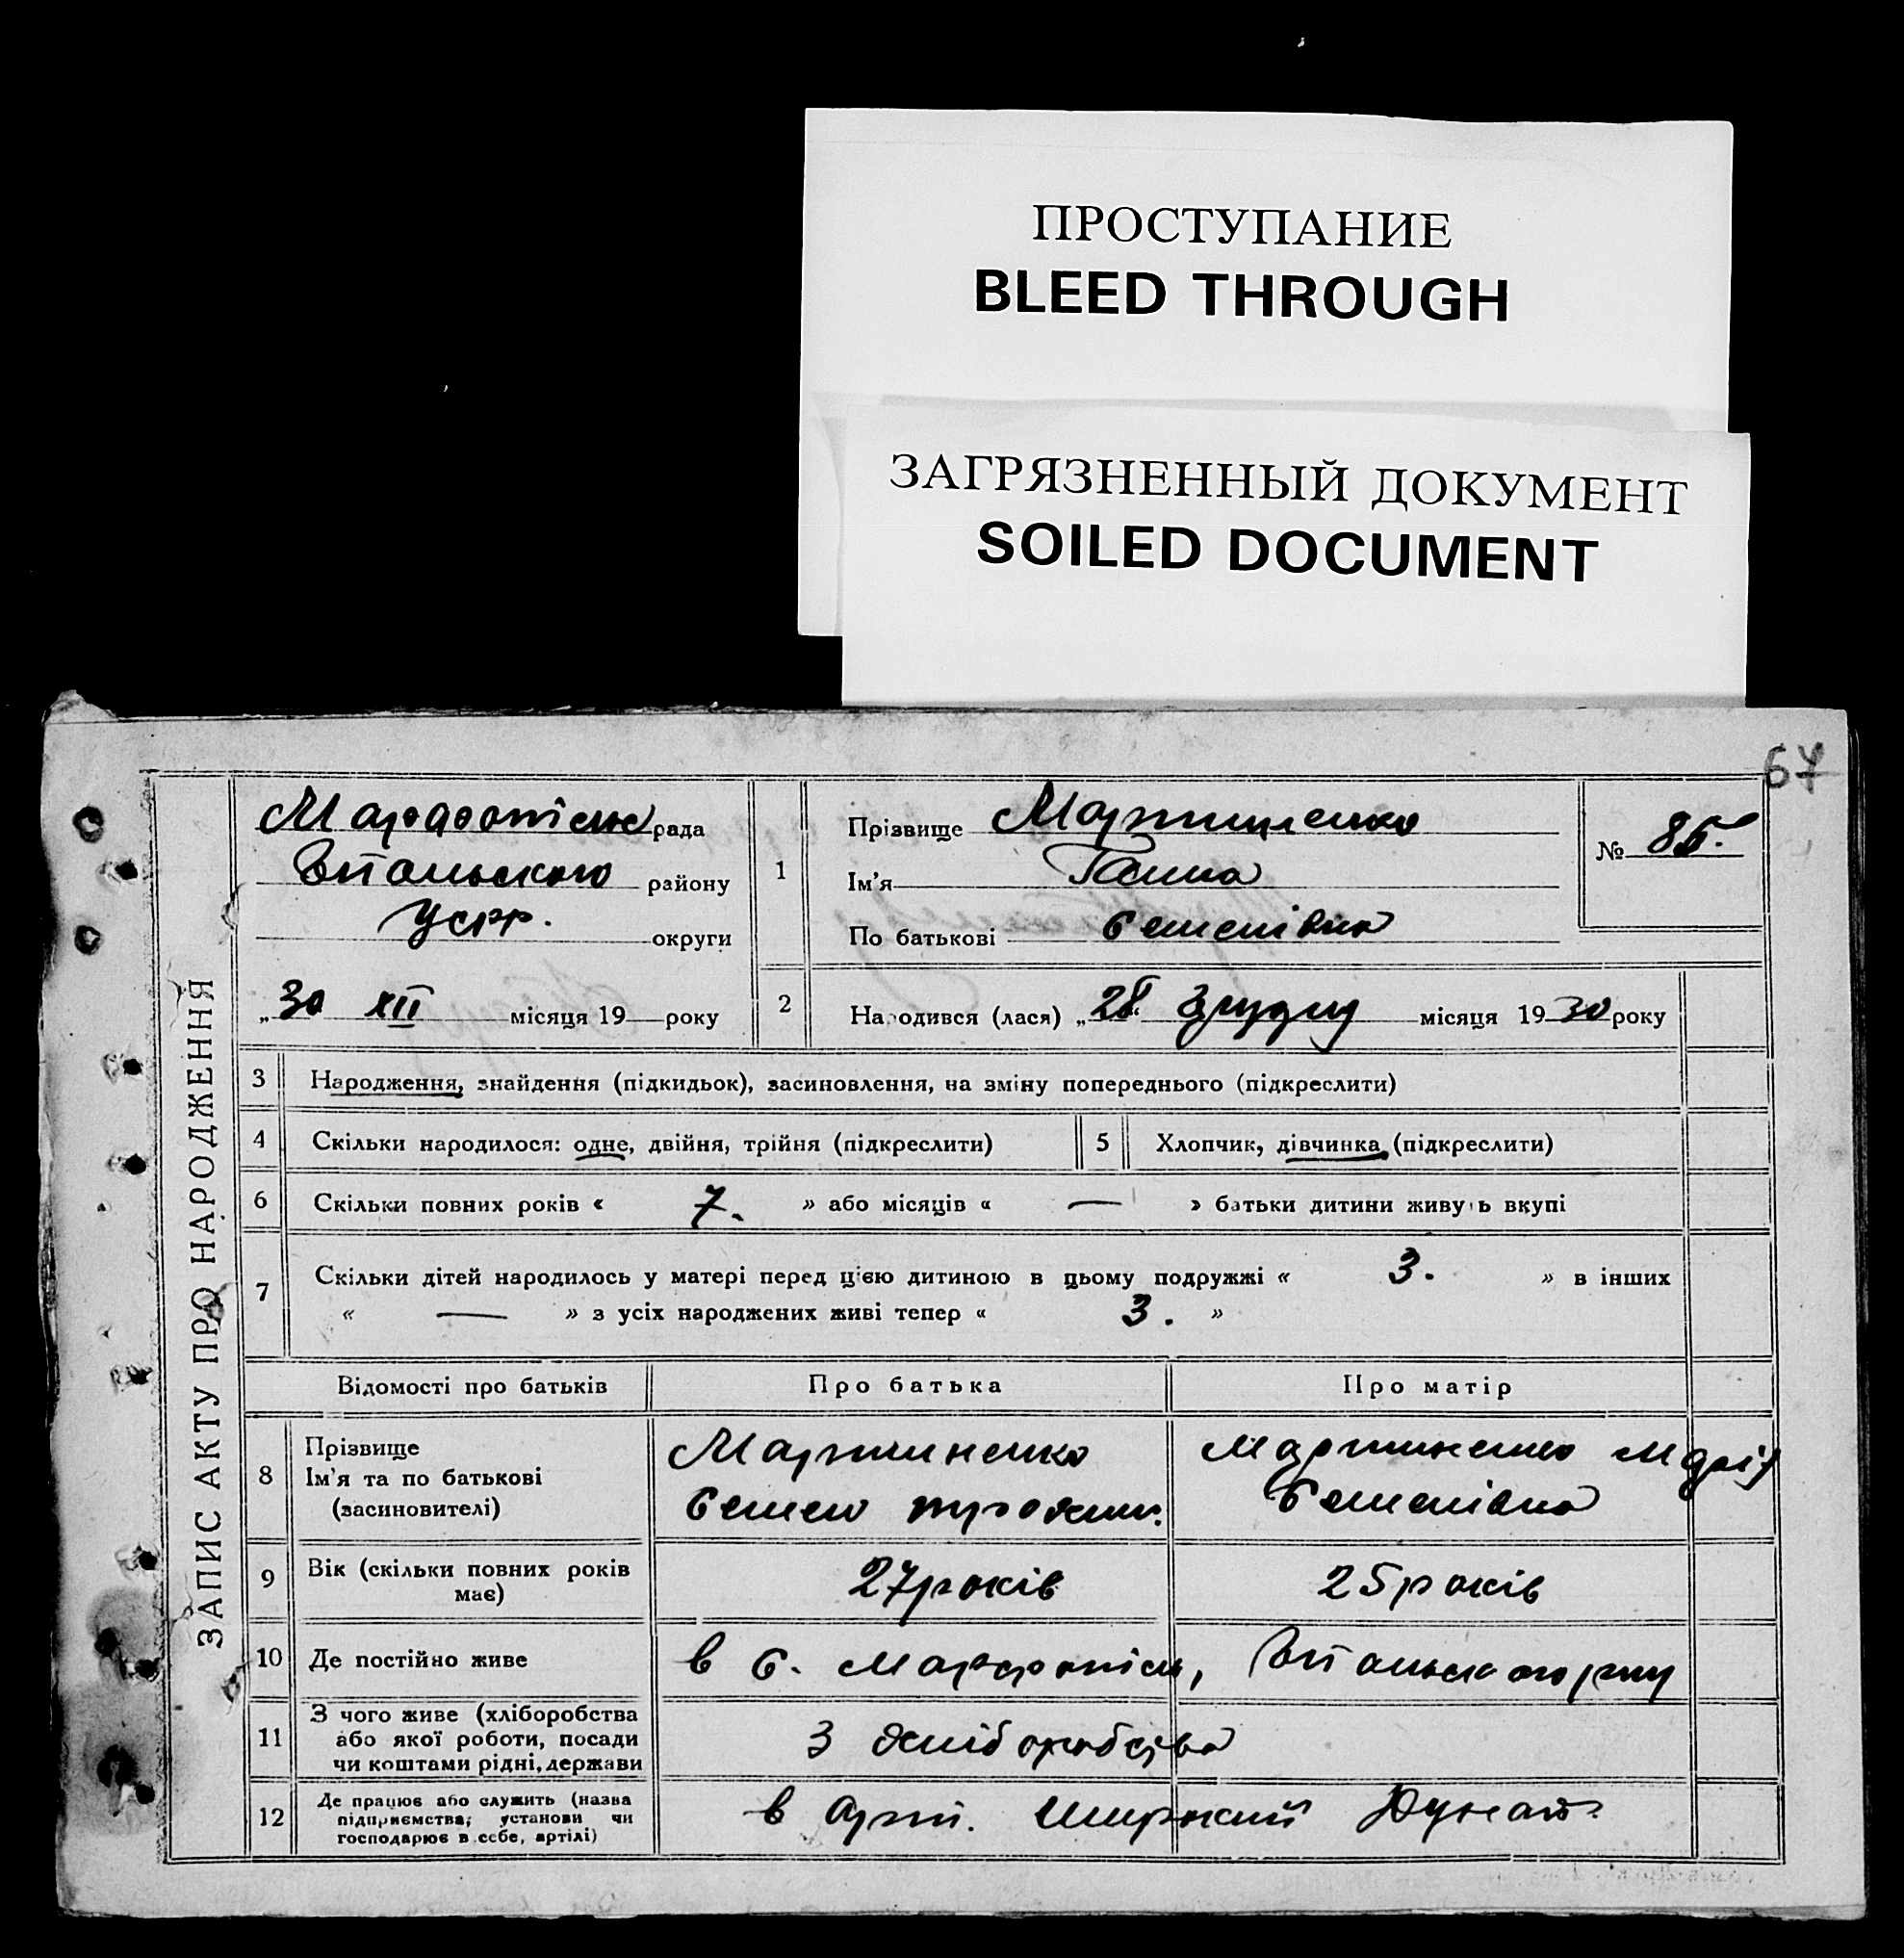 ПРОСТУПАНИЕ
BLEED THROUGH
ЗАГРЯЗНЕННЫЙ ДОКУМЕНТ
SOILED DOCUMENT
67
ЗАПИС АКТУ ПРО НАРОДЖЕННЯ
рада
району
УСРР. округи
„30 XII місяця 19 року
1
Прізвище Мартиненко
Ім'я Ганна
По батькові Семенівна
№ 85.
2
Народився (лася) „28. грудня місяця 1930 року
3 Народження, знайдення (підкидьок), засиновлення, на зміну попереднього (підкреслити)
4 Скільки народилося: одне, двійня, трійня (підкреслити)
5 Хлопчик, дівчинка (підкреслити)
6 Скільки повних років « 7. » або місяців « — » батьки дитини живуть вкупі
7 Скільки дітей народилось у матері перед цією дитиною в цьому подружжі « 3. » в інших
« — » з усіх народжених живі тепер « 3. »
Відомості про батьків
Про батька
Про матір
8 Прізвище
Ім'я та по батькові
(засиновителі)
Мартиненко
Семен
Мартиненко Марія
Семенівна
9 Вік (скільки повних років
має)
27 років
25 років
10 Де постійно живе
в с.
11 З чого живе (хліборобства
або якої роботи, посади
чи коштами рідні, держави
З хліборобства
12 Де працює або служить (назва
підприємства; установи чи
господарює в себе, артілі)
в Арт. Широкий